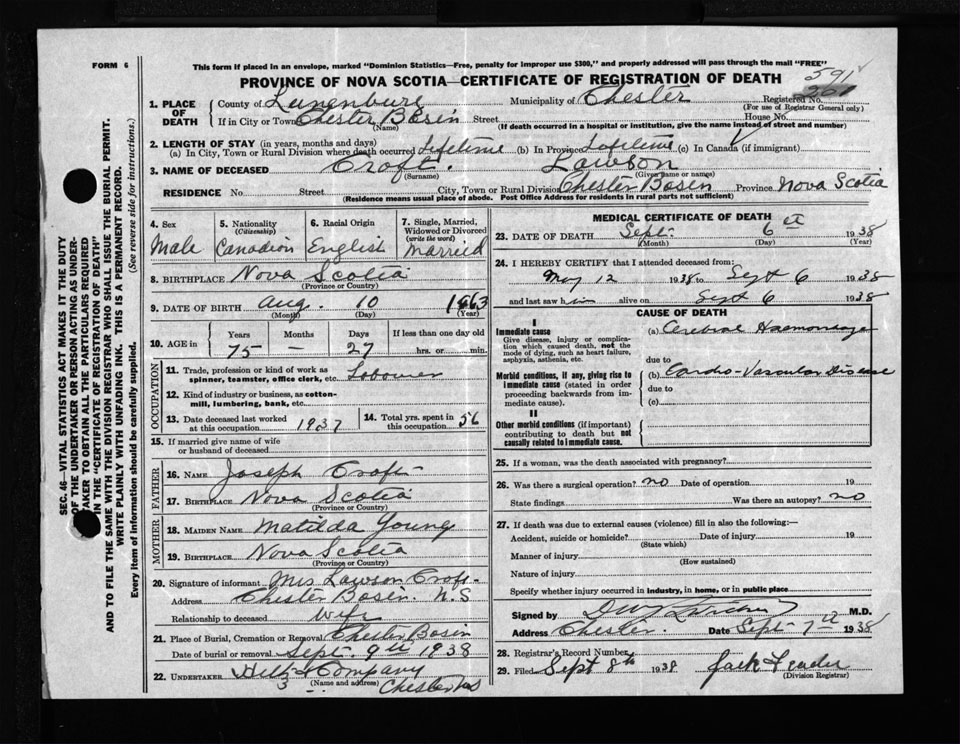 FORM 6
This form if placed in an envelope, marked "Dominion Statistics—Free, penalty for improper use $300," and properly addressed will pass through the mail "FREE"
PROVINCE OF NOVA SCOTIA—CERTIFICATE OF REGISTRATION OF DEATH
591
1. PLACE OF DEATH
County of Lunenburg Municipality of Chester Registered No. 261
(For use of Registrar General only)
If in City or Town Chester Basin Street House No.
(Name) (If death occurred in a hospital or institution, give the name instead of street and number)
2. LENGTH OF STAY (in years, months and days)
(a) In City, Town or Rural Division where death occurred Lifetime (b) In Province Lifetime (c) In Canada (if immigrant)
3. NAME OF DECEASED Croft. Lawson
(Surname) (Given name or names)
RESIDENCE No. Street City, Town or Rural Division Chester Basin Province Nova Scotia
(Residence means usual place of abode. Post Office Address for residents in rural parts not sufficient)
SEC. 46—VITAL STATISTICS ACT MAKES IT THE DUTY
OF THE UNDERTAKER OR PERSON ACTING AS UNDER-
TAKER TO OBTAIN ALL THE PARTICULARS REQUIRED
IN THE "CERTIFICATE OF REGISTRATION OF DEATH"
AND TO FILE THE SAME WITH THE DIVISION REGISTRAR WHO SHALL ISSUE THE BURIAL PERMIT.
WRITE PLAINLY WITH UNFADING INK. THIS IS A PERMANENT RECORD.
Every item of information should be carefully supplied. (See reverse side for instructions.)
4. Sex 5. Nationality (Citizenship) 6. Racial Origin 7. Single, Married, Widowed or Divorced (write the word)
Male Canadian English Married
8. BIRTHPLACE Nova Scotia
(Province or Country)
9. DATE OF BIRTH Aug. 10 1863
(Month) (Day) (Year)
10. AGE in Years Months Days If less than one day old
75 — 27 hrs. or min.
OCCUPATION
11. Trade, profession or kind of work as
spinner, teamster, office clerk, etc. Labourer
12. Kind of industry or business, as cotton-
mill, lumbering, bank, etc.
13. Date deceased last worked at this occupation 1937 14. Total yrs. spent in this occupation 56
15. If married give name of wife
or husband of deceased
FATHER
16. NAME Joseph Croft
17. BIRTHPLACE Nova Scotia
(Province or Country)
MOTHER
18. MAIDEN NAME Matilda Young
19. BIRTHPLACE Nova Scotia
(Province or Country)
20. Signature of informant Mrs Lawson Croft.
Address Chester Basin. N.S
Relationship to deceased Wife
21. Place of Burial, Cremation or Removal Chester Basin
Date of burial or removal Sept. 9th 1938
22. UNDERTAKER Company
(Name and address) Chester NS
MEDICAL CERTIFICATE OF DEATH
23. DATE OF DEATH Sept. 6 1938
(Month) (Day) (Year)
24. I HEREBY CERTIFY that I attended deceased from:
May 12 1938 to Sept 6 1938
and last saw him alive on Sept 6 1938
CAUSE OF DEATH
I
Immediate cause
Give disease, injury or complica-
tion which caused death, not the
mode of dying, such as heart failure,
asphyxia, asthenia, etc.
(a) Cerebral Haemorrhage
due to
Morbid conditions, if any, giving rise to
immediate cause (stated in order
proceeding backwards from im-
mediate cause).
(b) Cardio-Vascular Disease
due to
(c)
II
Other morbid conditions (if important)
contributing to death but not
causally related to immediate cause.
25. If a woman, was the death associated with pregnancy?
26. Was there a surgical operation? no Date of operation 19
State findings Was there an autopsy? no
27. If death was due to external causes (violence) fill in also the following:—
Accident, suicide or homicide? Date of injury 19
(State which)
Manner of injury
(How sustained)
Nature of injury
Specify whether injury occurred in industry, in home, or in public place
Signed by M.D.
Address Chester. Date Sept 7th 1938
28. Registrar's Record Number
29. Filed Sept 8th 1938 Jack
(Division Registrar)